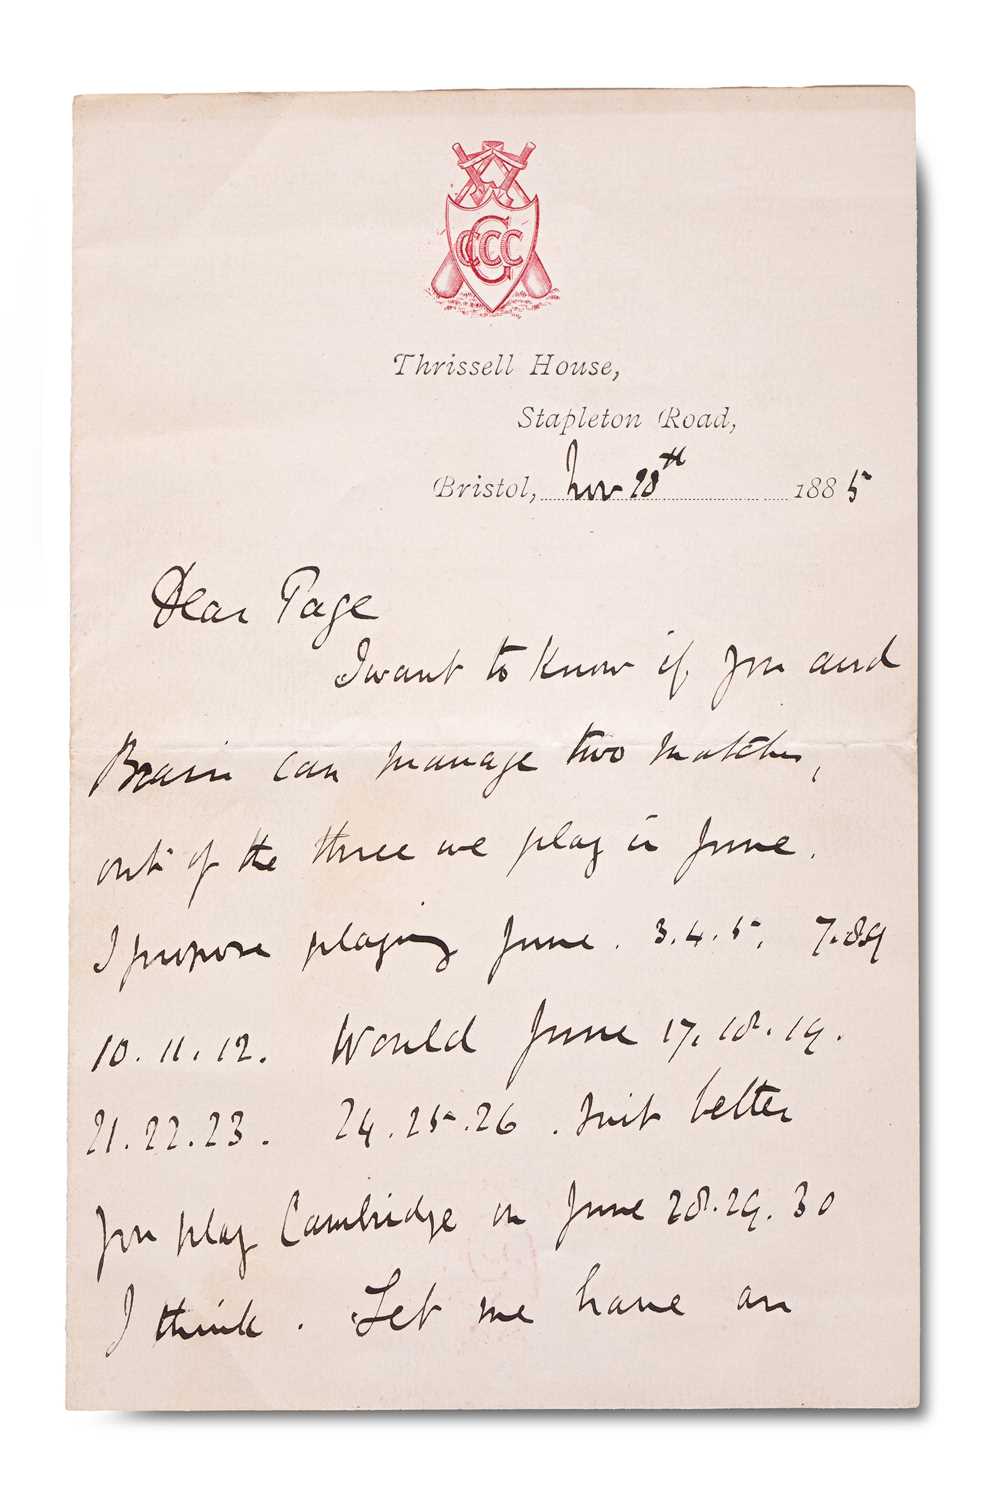 GCCC
Thrissell House,
Stapleton Road,
Bristol, Nov 28th 1885
Dear Page
I want to know if you and
Brain can manage two matches,
out of the three we play in June.
I propose playing June. 3.4.5. 7.8.9
10.11.12. Would June 17.18.19.
21.22.23. 24.25.26. suit better
you play Cambridge on June 28.29.30
I think. Let me have an